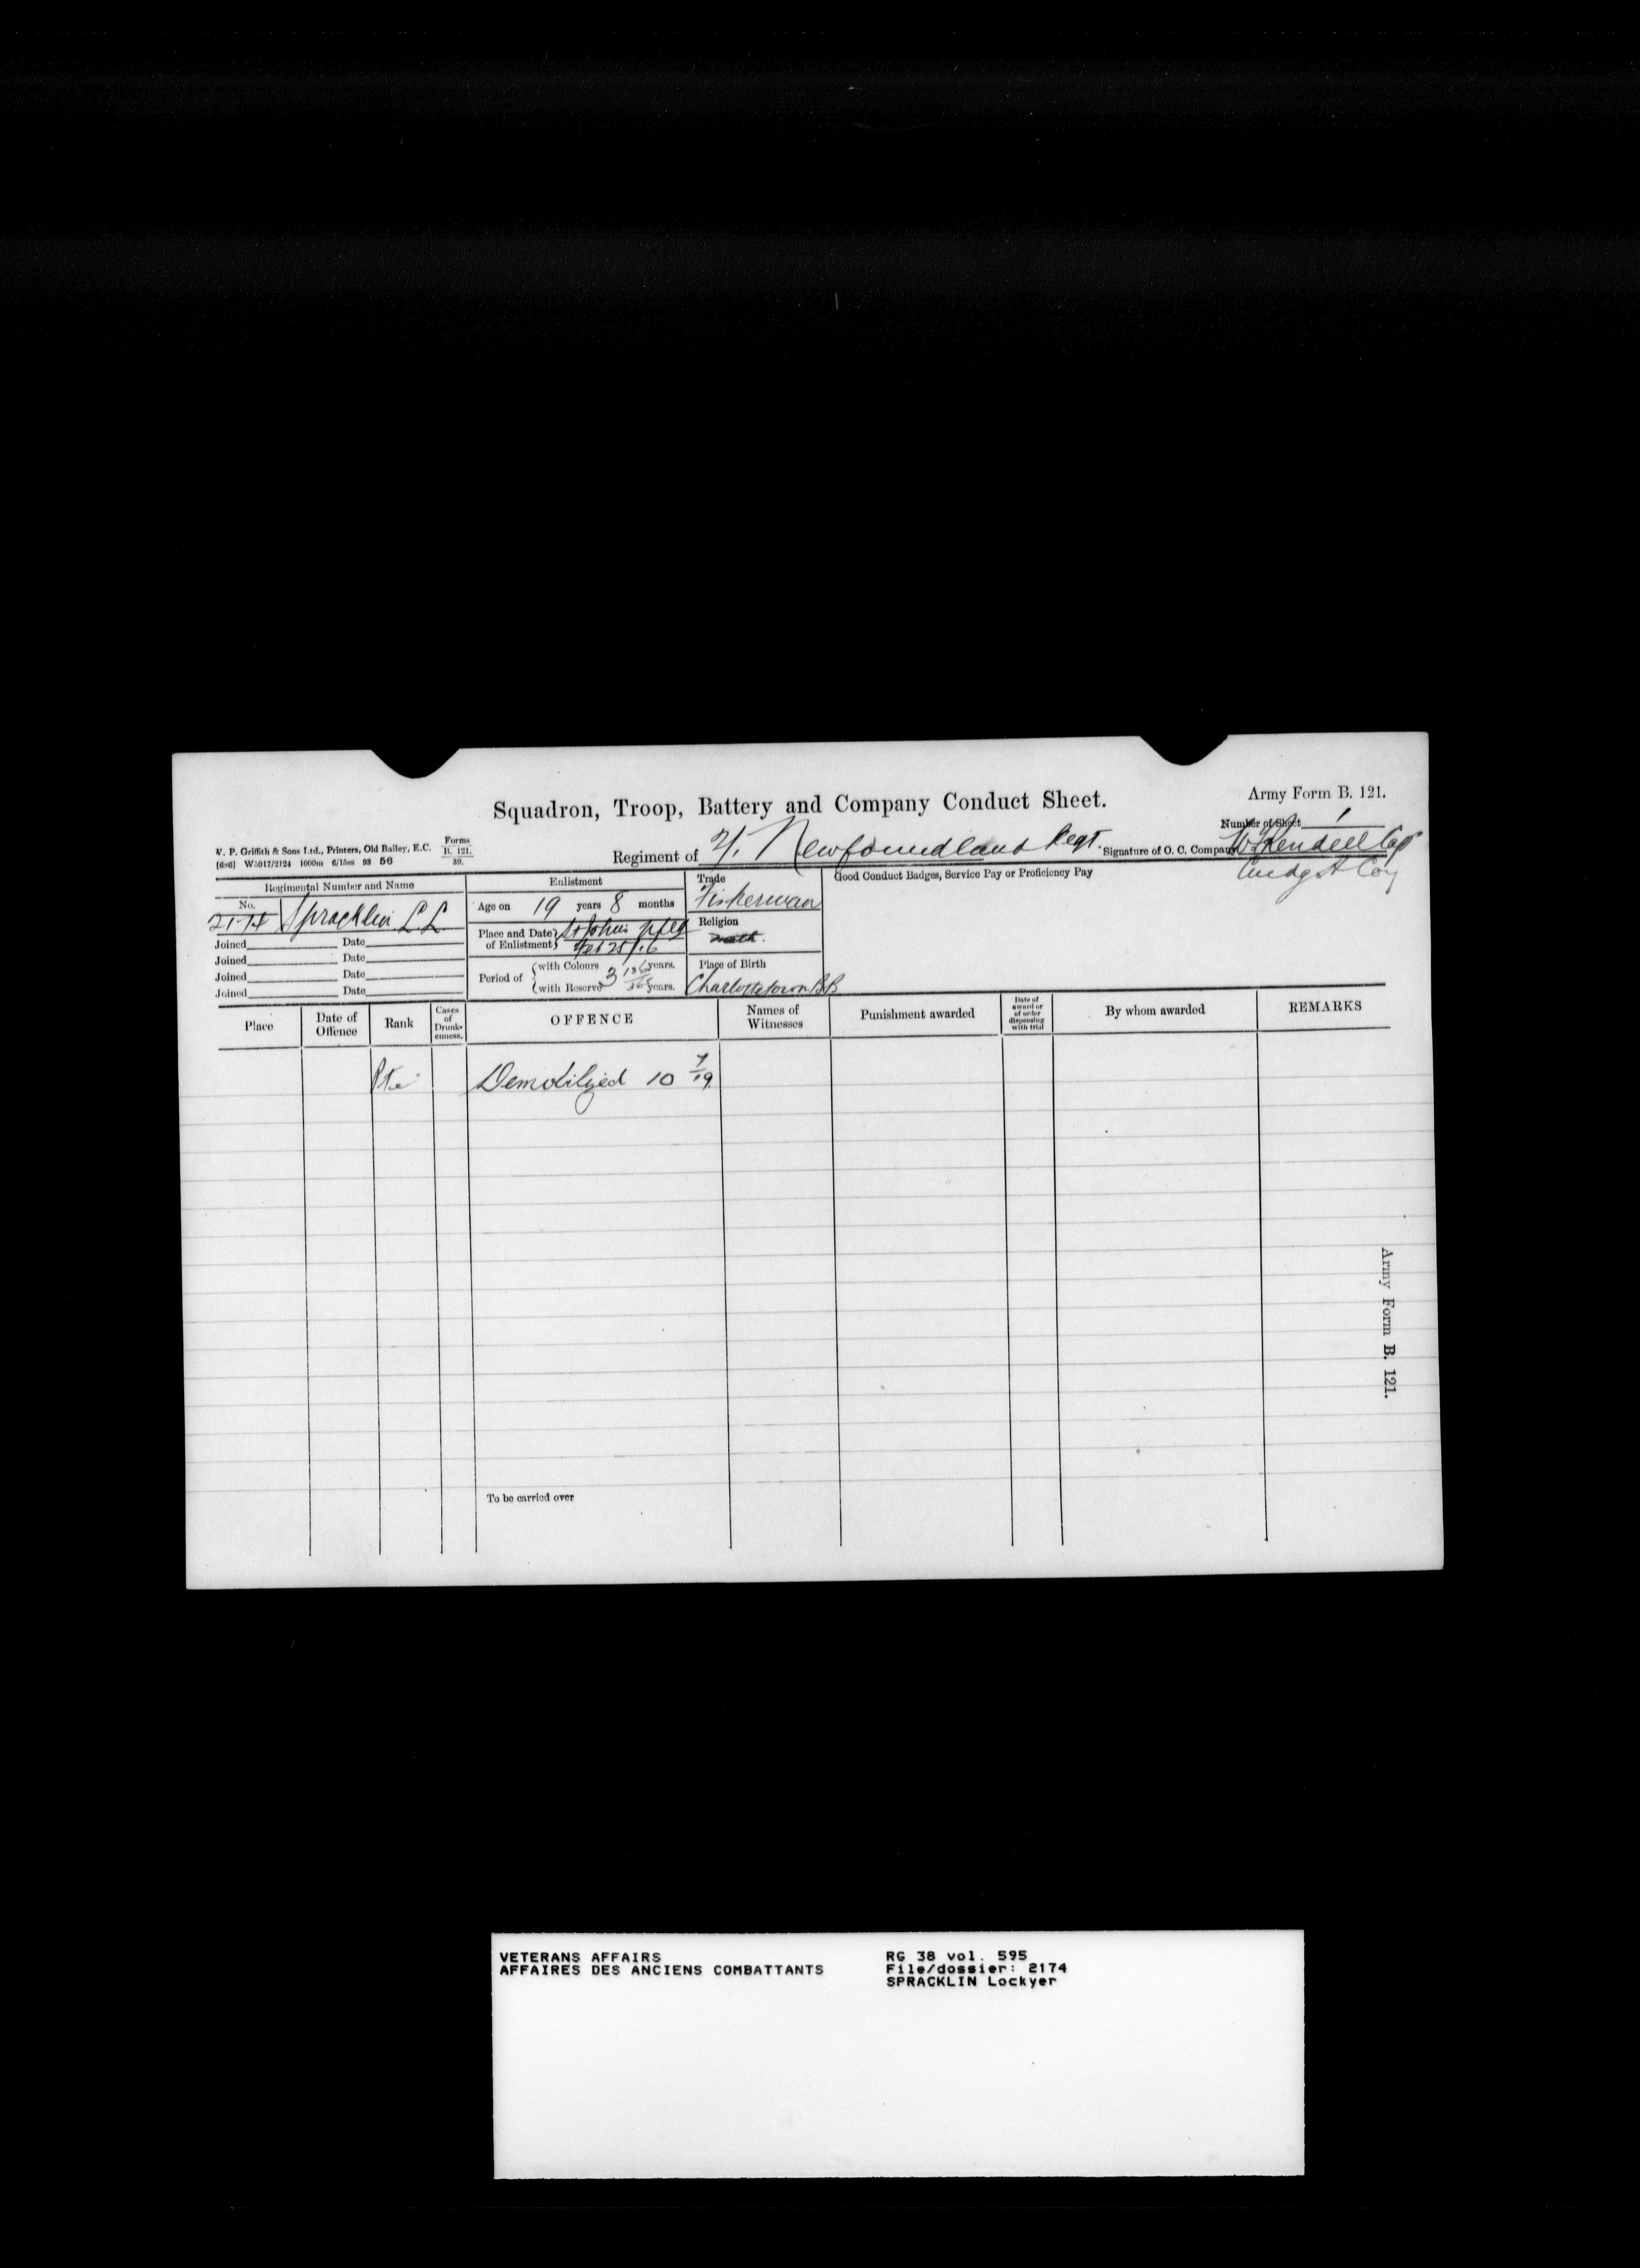 Squadron, Troop, Battery and Company Conduct Sheet.
Army Form B. 121.
Number of Sheet 1
W. P. Griffith & Sons Ltd., Printers, Old Bailey, E.C.
[6s6] W3017/2124 1000m 6/15ss 93 56
Forms
B. 121.
39.
Regiment of 2/1 Newfoundland Regt.
Signature of O. C. Company Rendell Cap
Comdg A Coy
Regimental Number and Name
No.
2174 Spracklin L.L.
Joined Date
Joined Date
Joined Date
Joined Date
Enlistment
Age on 19 years 8 months
Place and Date of Enlistment St Johns Nfld
Feb 25/16
Period of with Colours 3 136/365 years.
with Reserve years.
Trade
Fisherman
Religion
Meth.
Place of Birth
Charlottetown B.B
Good Conduct Badges, Service Pay or Proficiency Pay
Place
Date of Offence
Rank
Cases of Drunkenness.
OFFENCE
Names of Witnesses
Punishment awarded
Date of award or of order dispensing with trial
By whom awarded
REMARKS
Pte
Demobilized 10 7/19
To be carried over
Army Form B. 121.
VETERANS AFFAIRS
AFFAIRES DES ANCIENS COMBATTANTS
RG 38 vol. 595
File/dossier: 2174
SPRACKLIN Lockyer